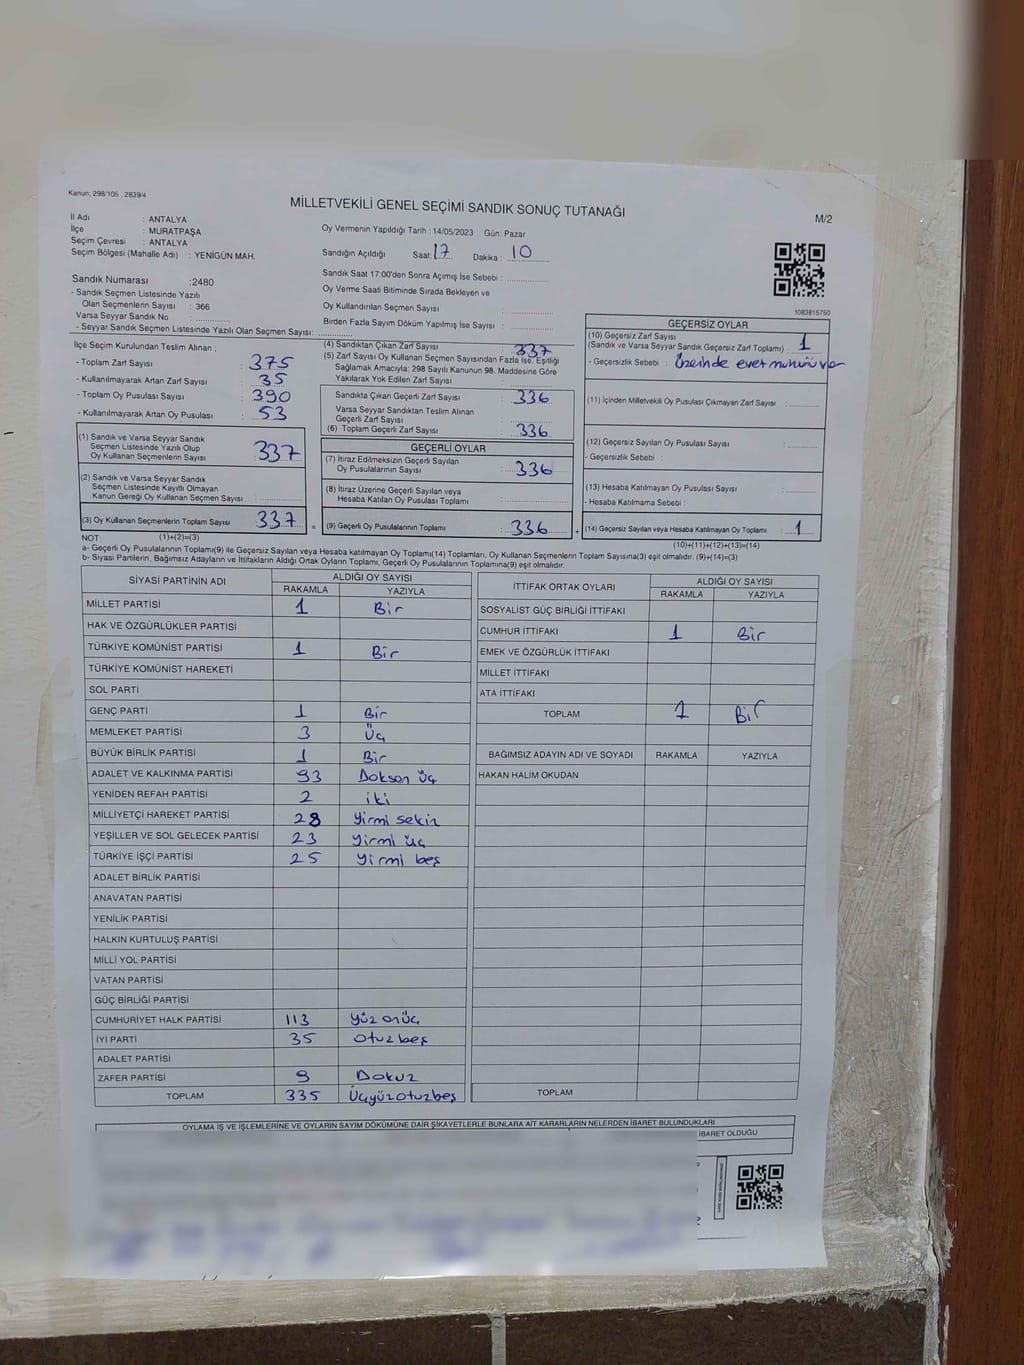 Kanun: 298/105 , 2839/4
MİLLETVEKİLİ GENEL SEÇİMİ SANDIK SONUÇ TUTANAĞI
M/2
İl Adı : ANTALYA
İlçe : MURATPAŞA
Seçim Çevresi : ANTALYA
Seçim Bölgesi (Mahalle Adı) : YENİGÜN MAH.
Sandık Numarası :2480
- Sandık Seçmen Listesinde Yazılı
Olan Seçmenlerin Sayısı : 366
Varsa Seyyar Sandık No :
- Seyyar Sandık Seçmen Listesinde Yazılı Olan Seçmen Sayısı:
Oy Vermenin Yapıldığı Tarih : 14/05/2023 Gün: Pazar
Sandığın Açıldığı Saat: 17 Dakika : 10
Sandık Saat 17:00'den Sonra Açımış İse Sebebi :
Oy Verme Saati Bitiminde Sırada Bekleyen ve
Oy Kullandırılan Seçmen Sayısı :
Birden Fazla Sayım Döküm Yapılmış İse Sayısı :
1083815750
İlçe Seçim Kurulundan Teslim Alınan ;
- Toplam Zarf Sayısı : 375
- Kullanılmayarak Artan Zarf Sayısı : 35
- Toplam Oy Pusulası Sayısı : 390
- Kullanılmayarak Artan Oy Pusulası : 53
(1) Sandık ve Varsa Seyyar Sandık
Seçmen Listesinde Yazılı Olup
Oy Kullanan Seçmenlerin Sayısı : 337
(2) Sandık ve Varsa Seyyar Sandık
Seçmen Listesinde Kayıtlı Olmayan
Kanun Gereği Oy Kullanan Seçmen Sayısı :
(3) Oy Kullanan Seçmenlerin Toplam Sayısı : 337
(4) Sandıktan Çıkan Zarf Sayısı : 337
(5) Zarf Sayısı Oy Kullanan Seçmen Sayısından Fazla İse, Eşitliği
Sağlamak Amacıyla; 298 Sayılı Kanunun 98. Maddesine Göre
Yakılarak Yok Edilen Zarf Sayısı :
Sandıkta Çıkan Geçerli Zarf Sayısı : 336
Varsa Seyyar Sandıktan Teslim Alınan
Geçerli Zarf Sayısı :
(6) Toplam Geçerli Zarf Sayısı : 336
GEÇERLİ OYLAR
(7) İtiraz Edilmeksizin Geçerli Sayılan
Oy Pusulalarının Sayısı : 336
(8) İtiraz Üzerine Geçerli Sayılan veya
Hesaba Katılan Oy Pusulası Toplamı :
= (9) Geçerli Oy Pusulalarının Toplamı : 336 +
GEÇERSİZ OYLAR
(10) Geçersiz Zarf Sayısı
(Sandık ve Varsa Seyyar Sandık Geçersiz Zarf Toplamı) : 1
- Geçersizlik Sebebi : Üzerinde evet mühürü var
(11) İçinden Milletvekili Oy Pusulası Çıkmayan Zarf Sayısı :
(12) Geçersiz Sayılan Oy Pusulası Sayısı :
- Geçersizlik Sebebi :
(13) Hesaba Katılmayan Oy Pusulası Sayısı :
- Hesaba Katılmama Sebebi :
(14) Geçersiz Sayılan veya Hesaba Katılmayan Oy Toplamı : 1
NOT: (1)+(2)=(3) (10)+(11)+(12)+(13)=(14)
a- Geçerli Oy Pusulalarının Toplamı(9) ile Geçersiz Sayılan veya Hesaba katılmayan Oy Toplamı(14) Toplamları, Oy Kullanan Seçmenlerin Toplam Sayısına(3) eşit olmalıdır. (9)+(14)=(3)
b- Siyasi Partilerin, Bağımsız Adayların ve İttifakların Aldığı Ortak Oyların Toplamı, Geçerli Oy Pusulalarının Toplamına(9) eşit olmalıdır.
SİYASİ PARTİNİN ADI ALDIĞI OY SAYISI
RAKAMLA YAZIYLA
MİLLET PARTİSİ 1 Bir
HAK VE ÖZGÜRLÜKLER PARTİSİ
TÜRKİYE KOMÜNİST PARTİSİ 1 Bir
TÜRKİYE KOMÜNİST HAREKETİ
SOL PARTİ
GENÇ PARTİ 1 Bir
MEMLEKET PARTİSİ 3 Üç
BÜYÜK BİRLİK PARTİSİ 1 Bir
ADALET VE KALKINMA PARTİSİ 93 Doksan üç
YENİDEN REFAH PARTİSİ 2 iki
MİLLİYETÇİ HAREKET PARTİSİ 28 Yirmi sekiz
YEŞİLLER VE SOL GELECEK PARTİSİ 23 Yirmi üç
TÜRKİYE İŞÇİ PARTİSİ 25 Yirmi beş
ADALET BİRLİK PARTİSİ
ANAVATAN PARTİSİ
YENİLİK PARTİSİ
HALKIN KURTULUŞ PARTİSİ
MİLLİ YOL PARTİSİ
VATAN PARTİSİ
GÜÇ BİRLİĞİ PARTİSİ
CUMHURİYET HALK PARTİSİ 113 Yüz onüç
İYİ PARTİ 35 Otuz beş
ADALET PARTİSİ
ZAFER PARTİSİ 9 Dokuz
TOPLAM 335 Üçyüzotuzbeş
İTTİFAK ORTAK OYLARI ALDIĞI OY SAYISI
RAKAMLA YAZIYLA
SOSYALİST GÜÇ BİRLİĞİ İTTİFAKI
CUMHUR İTTİFAKI 1 Bir
EMEK VE ÖZGÜRLÜK İTTİFAKI
MİLLET İTTİFAKI
ATA İTTİFAKI
TOPLAM 1 Bir
BAĞIMSIZ ADAYIN ADI VE SOYADI RAKAMLA YAZIYLA
HAKAN HALİM OKUDAN
TOPLAM
OYLAMA İŞ VE İŞLEMLERİNE VE OYLARIN SAYIM DÖKÜMÜNE DAİR ŞİKAYETLERLE BUNLARA AİT KARARLARIN NELERDEN İBARET BULUNDUKLARI
İBARET OLDUĞU